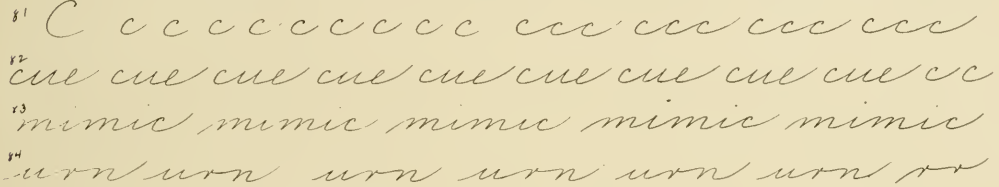 81 C c c c c c c c c c ccc ccc ccc ccc
82 cue cue cue cue cue cue cue cue cue c c
83 mimic mimic mimic mimic mimic
84 urn urn urn urn urn urn r r